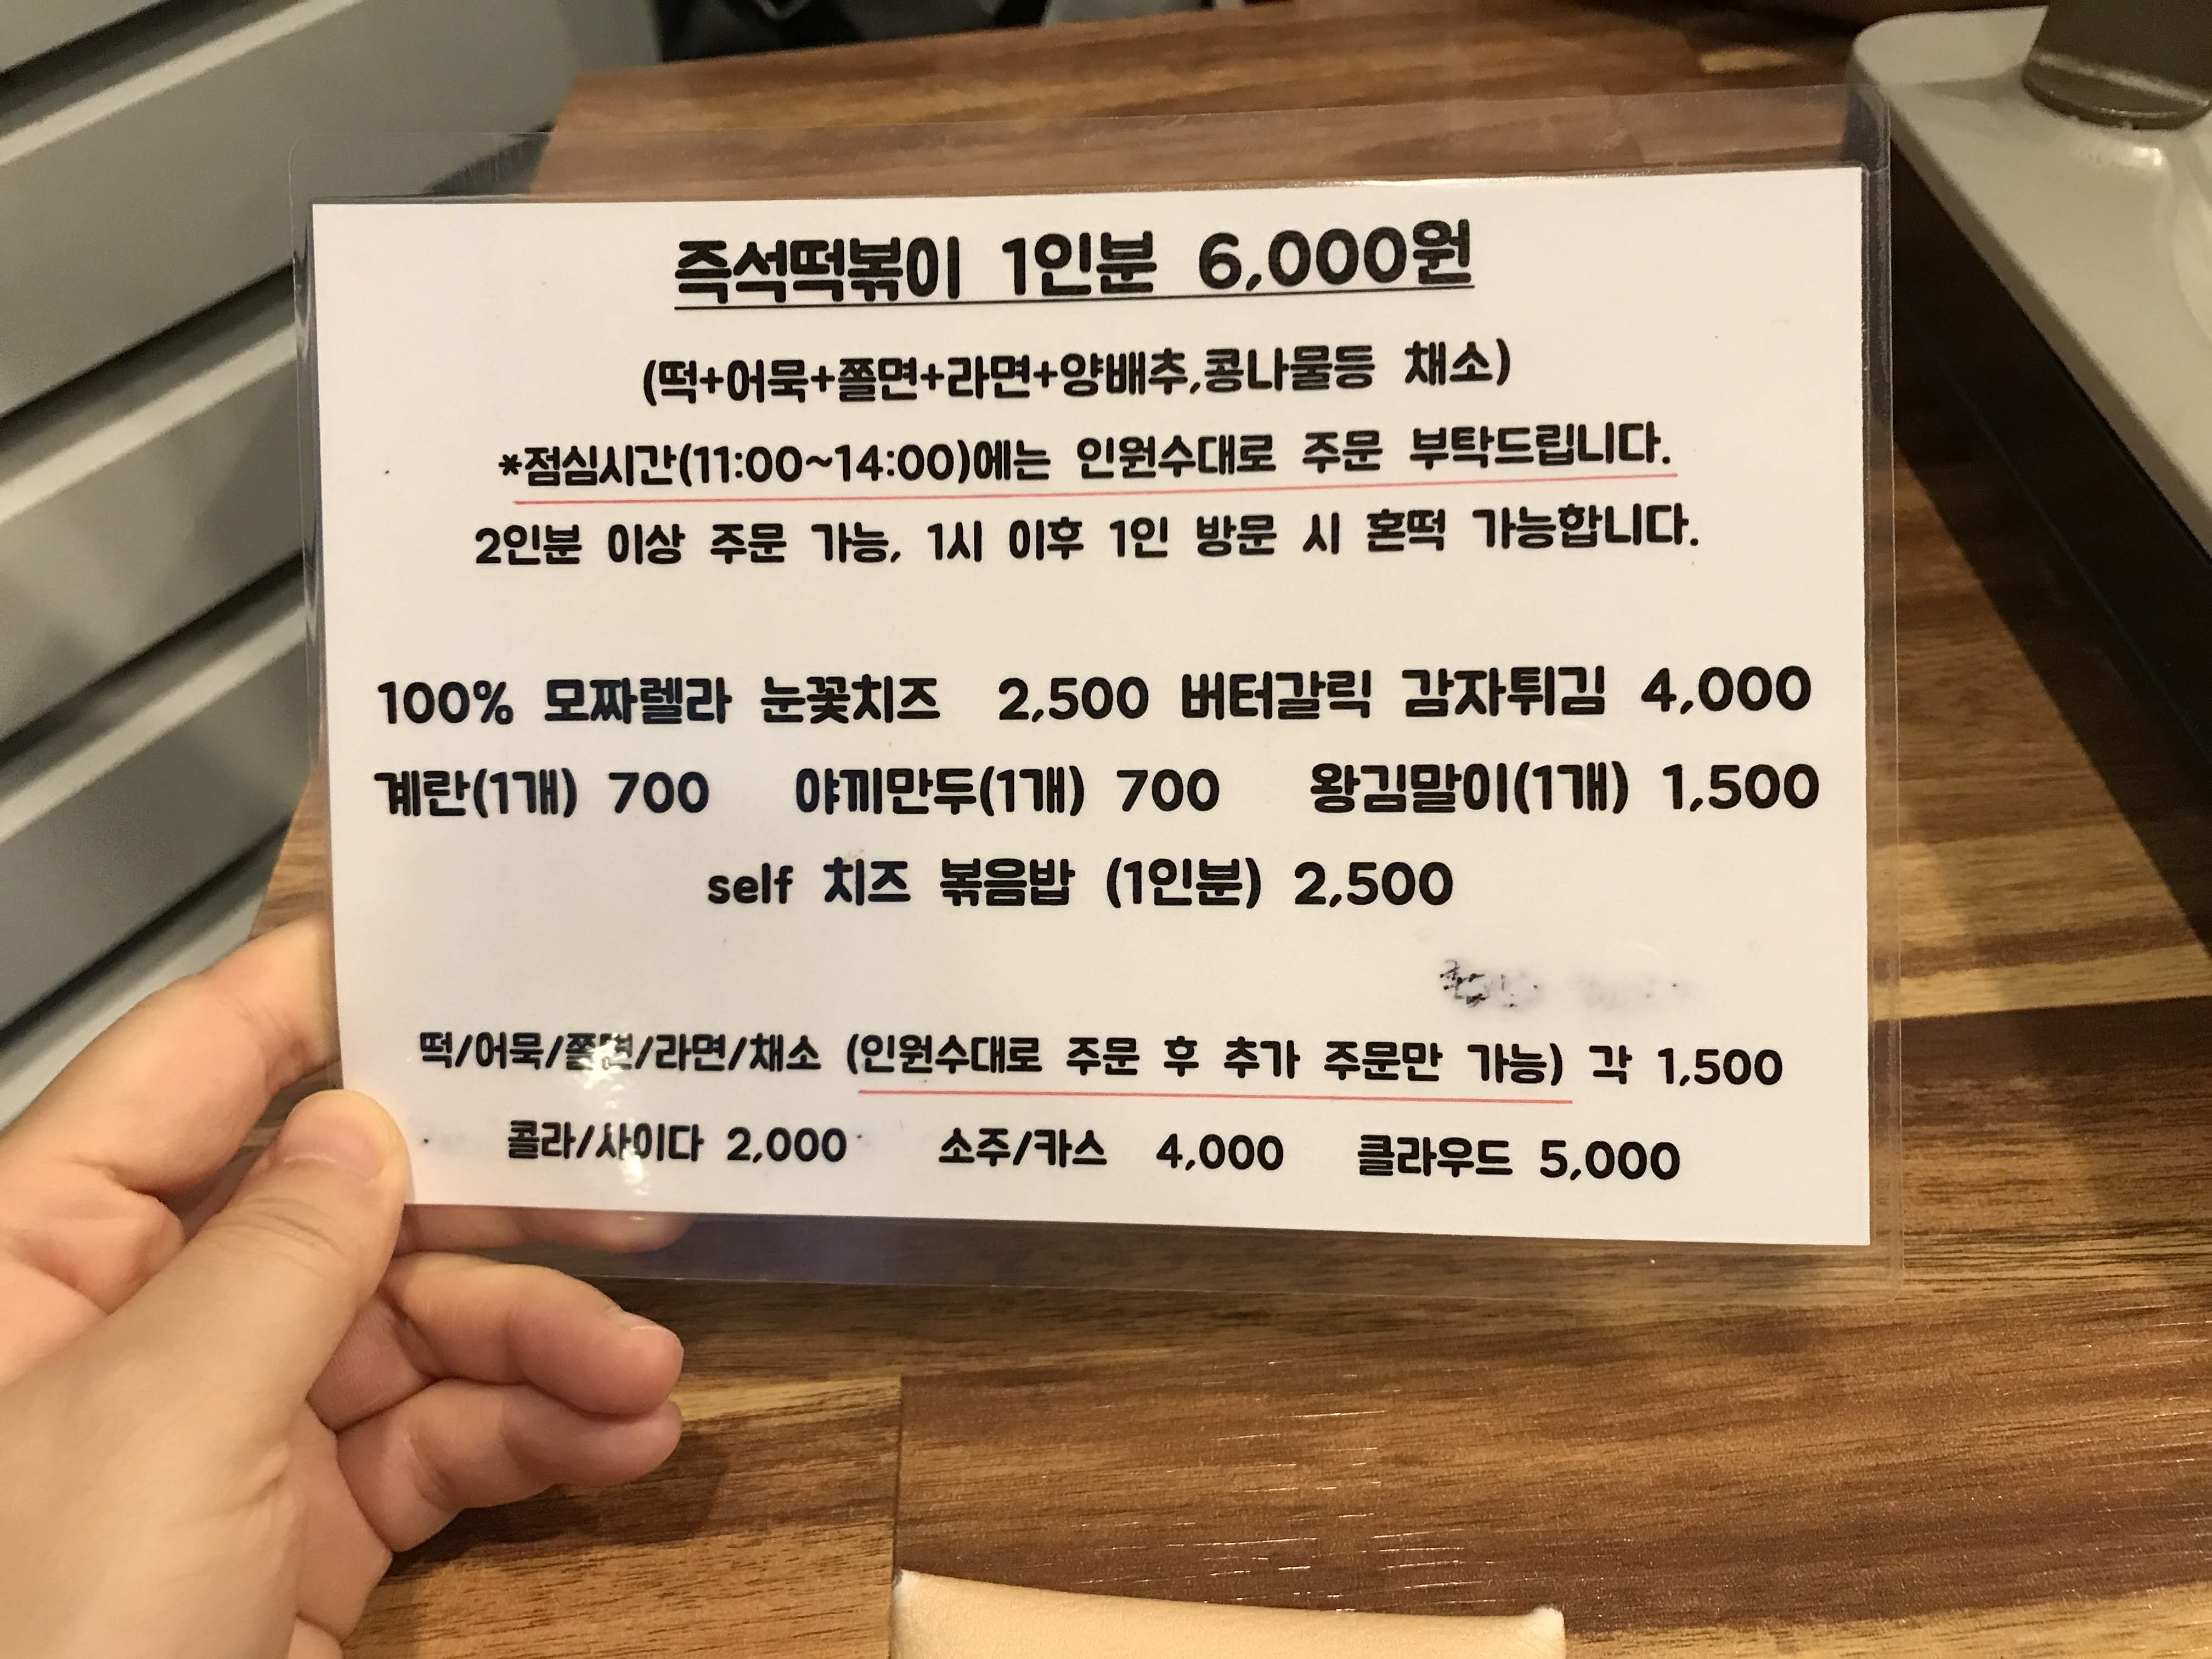 즉석떡볶이 1인분 6,000원
(떡+어묵+쫄면+라면+양배추,콩나물등 채소)
*점심시간(11:00~14:00)에는 인원수대로 주문 부탁드립니다.
2인분 이상 주문 가능, 1시 이후 1인 방문 시 혼떡 가능합니다.
100% 모짜렐라 눈꽃치즈 2,500 버터갈릭 감자튀김 4,000
계란(1개) 700 야끼만두(1개) 700 왕김말이(1개) 1,500
self 치즈 볶음밥 (1인분) 2,500
떡/어묵/쫄면/라면/채소 (인원수대로 주문 후 추가 주문만 가능) 각 1,500
콜라/사이다 2,000 소주/카스 4,000 클라우드 5,000